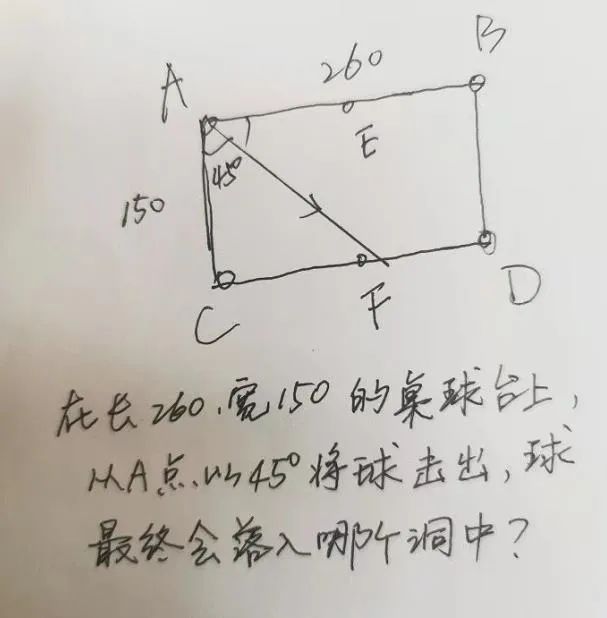 260
B
A
E
45°
150
F
D
C
在长260.宽150的桌球台上,
从A点以45°将球击出,球
最终会落入哪个洞中?